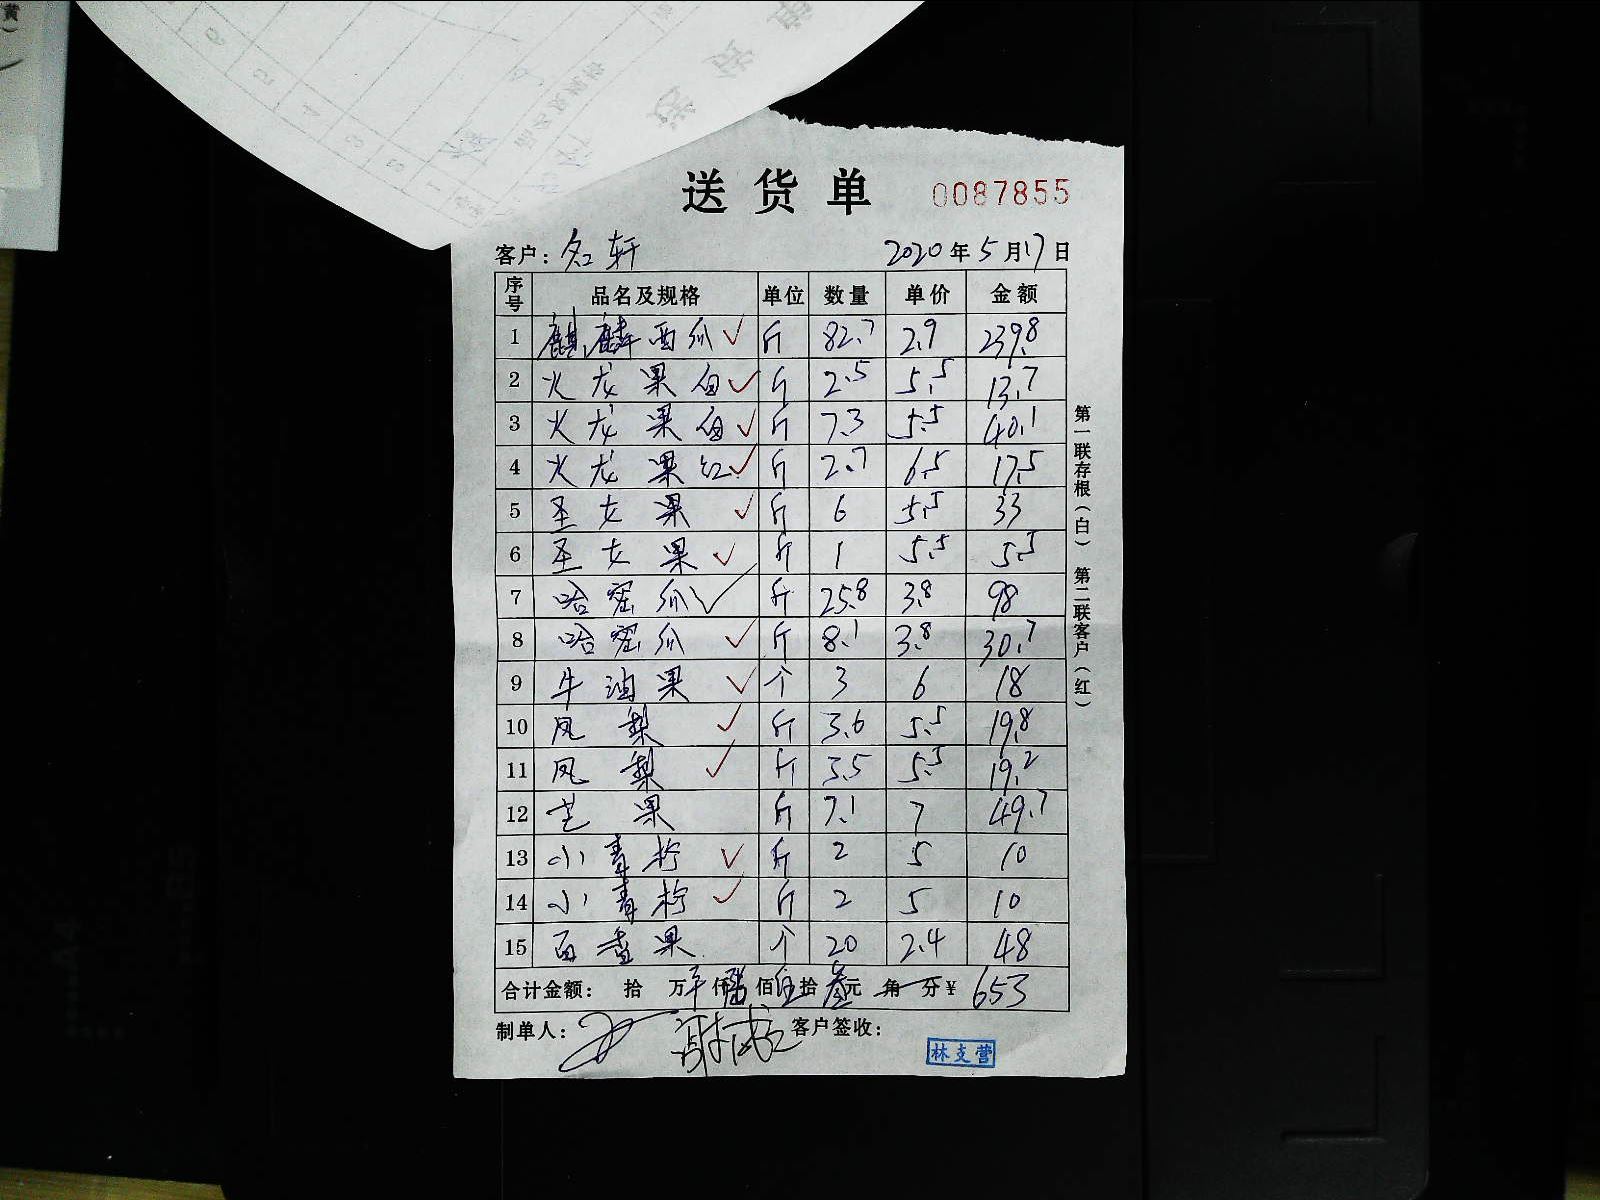 送货单 0087855
客户: 名轩 2020年5月17日
序号 品名及规格 单位 数量 单价 金额
1 麒麟西瓜 斤 82.7 2.9 239.8
2 火龙果白 斤 2.5 5.5 13.7
3 火龙果白 斤 7.3 5.5 40.1
4 火龙果红 斤 2.7 6.5 17.5
5 圣女果 斤 6 5.5 33
6 圣女果 斤 1 5.5 5.5
7 哈密瓜 斤 25.8 3.8 98
8 哈密瓜 斤 8.1 3.8 30.7
9 牛油果 个 3 6 18
10 凤梨 斤 3.6 5.5 19.8
11 凤梨 斤 3.5 5.5 19.2
12 芒果 斤 7.1 7 49.7
13 小青柠 斤 2 5 10
14 小青柠 斤 2 5 10
15 百香果 个 20 2.4 48
合计金额: 拾 万 仟 陆 佰 伍 拾 叁 元 角 分 ¥ 653
制单人: 客户签收:
林支营
第一联存根(白) 第二联客户(红)